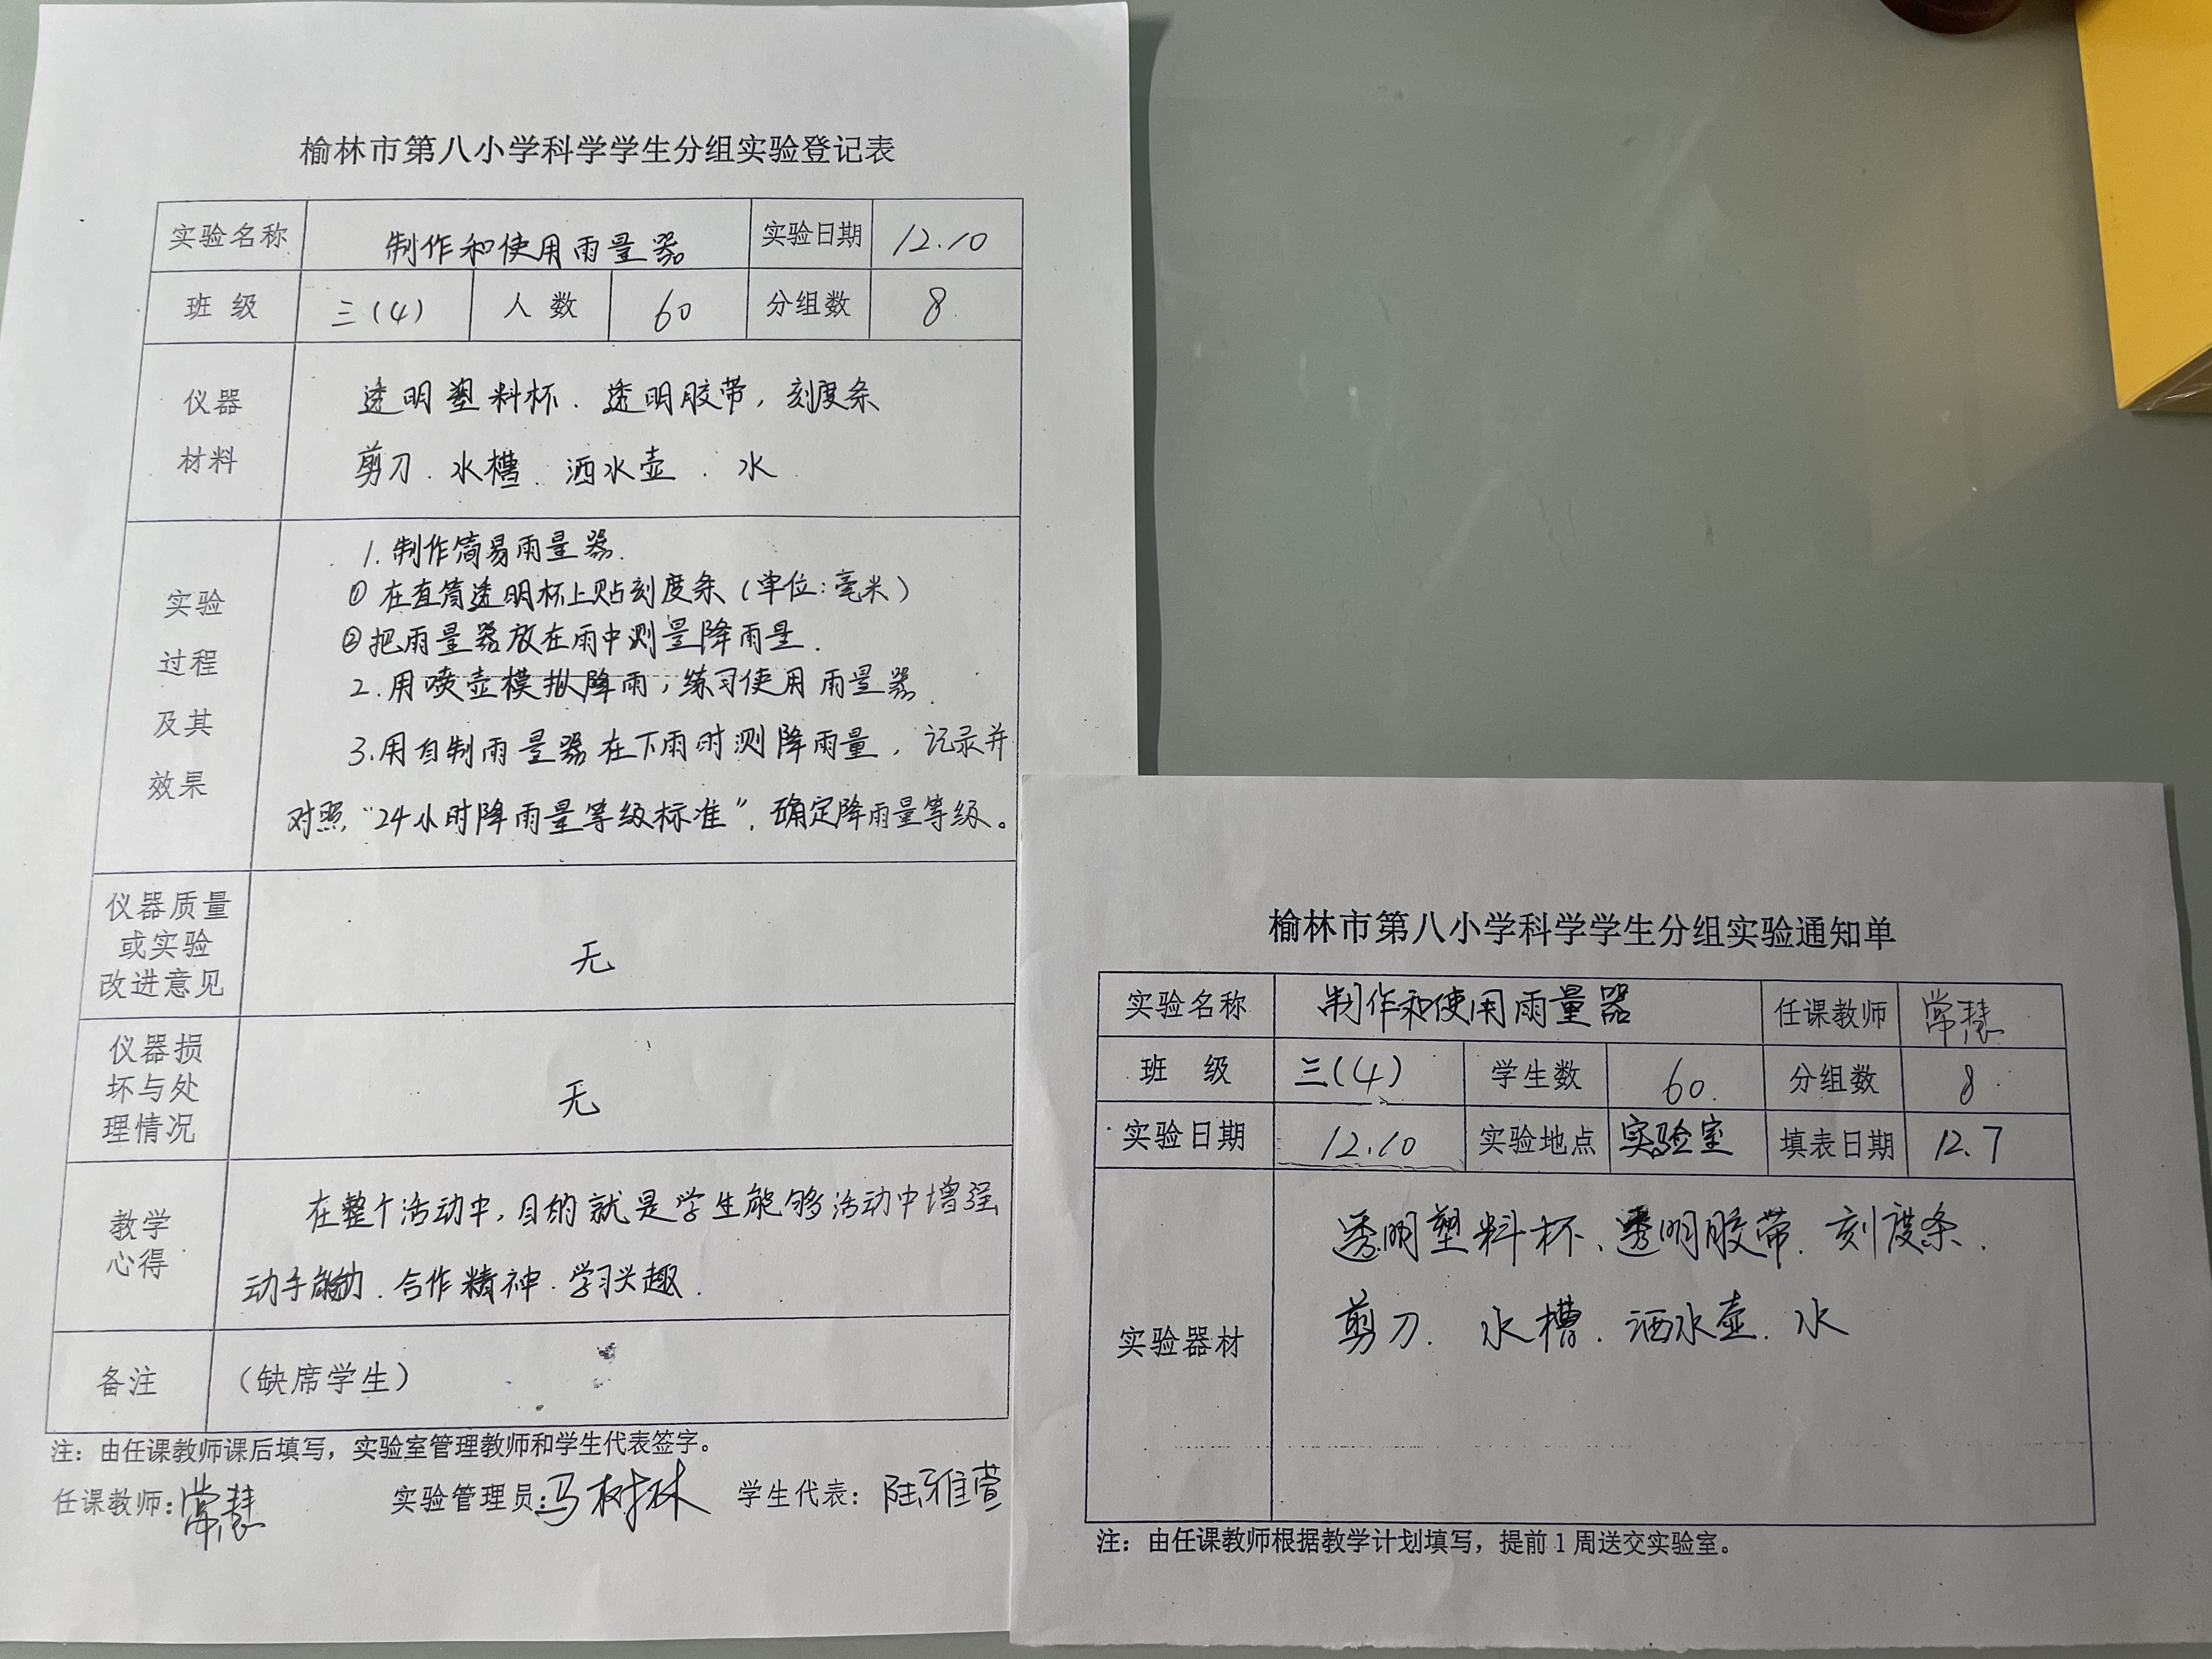 榆林市第八小学科学学生分组实验登记表
实验名称 制作和使用雨量器 实验日期 12.10
班 级 三(4) 人 数 60 分组数 8
仪器
材料
透明塑料杯、透明胶带，刻度条
剪刀．水槽．洒水壶．水
实验
过程
及其
效果
1.制作简易雨量器．
①在直筒透明杯上贴刻度条（单位：毫米）
②把雨量器放在雨中测量降雨量．
2.用喷壶模拟降雨，练习使用雨量器．
3.用自制雨量器在下雨时测降雨量，记录并
对照“24小时降雨量等级标准”，确定降雨量等级。
仪器质量
或实验
改进意见
无
仪器损
坏与处
理情况
无
教学
心得
在整个活动中，目的就是学生能够活动中增强
动手能力．合作精神．学习兴趣．
备注 （缺席学生）
注：由任课教师课后填写，实验室管理教师和学生代表签字。
任课教师：常慧 实验管理员：马树林 学生代表：陆雅萱
榆林市第八小学科学学生分组实验通知单
实验名称 制作和使用雨量器 任课教师 常慧
班 级 三(4) 学生数 60. 分组数 8
实验日期 12.10 实验地点 实验室 填表日期 12.7
实验器材
透明塑料杯、透明胶带．刻度条．
剪刀．水槽．洒水壶．水
注：由任课教师根据教学计划填写，提前1周送交实验室。